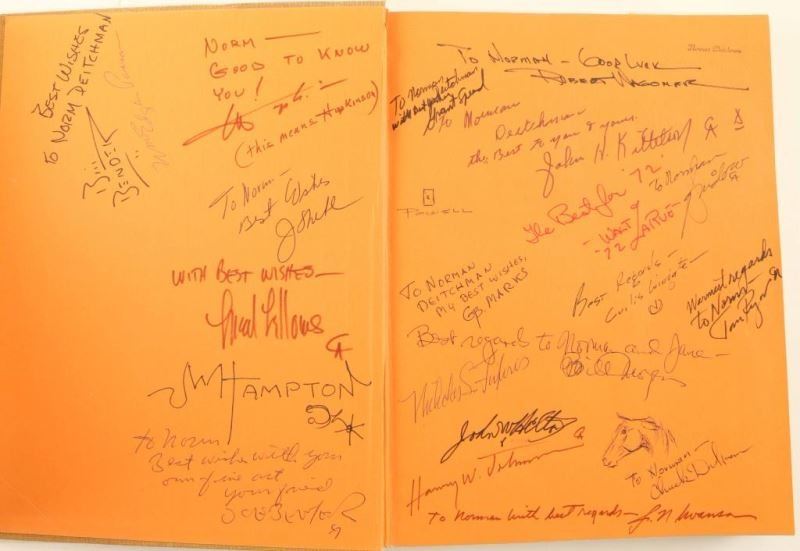 BEST WISHES
TO NORM DEITCHMAN
Bill
BENDER
NORM —
GOOD TO KNOW
YOU!
(this means Hopkinson)
To Norm—
Best Wishes
WITH BEST WISHES—
Fred Fellows
CA
JW HAMPTON
To Norm
Best wishes with your
own fine art
your friend
JOE BEELER
CA
To NORMAN — GOOD LUCK
ROBERT
To Norman
Grant Speed
To Norman
Deitchman
the Best to you & yours.
John H. Kittelson
CA
The Best for '72
WALT
LARUE
'72
To Norman
POWELL
TO NORMAN
DEITCHMAN
MY BEST WISHES,
GB. MARKS
Best Regards —
Curtis Wingate—
Warmest regards
to Norm
Tom Ryan
CA
Best regards to Norman and June—
Bill Moyers
Nicholas S. Firfires
John W. Hilton
Harry W. Johnson
CA
To Norman—
To Norman with best regards— J. N. Swanson